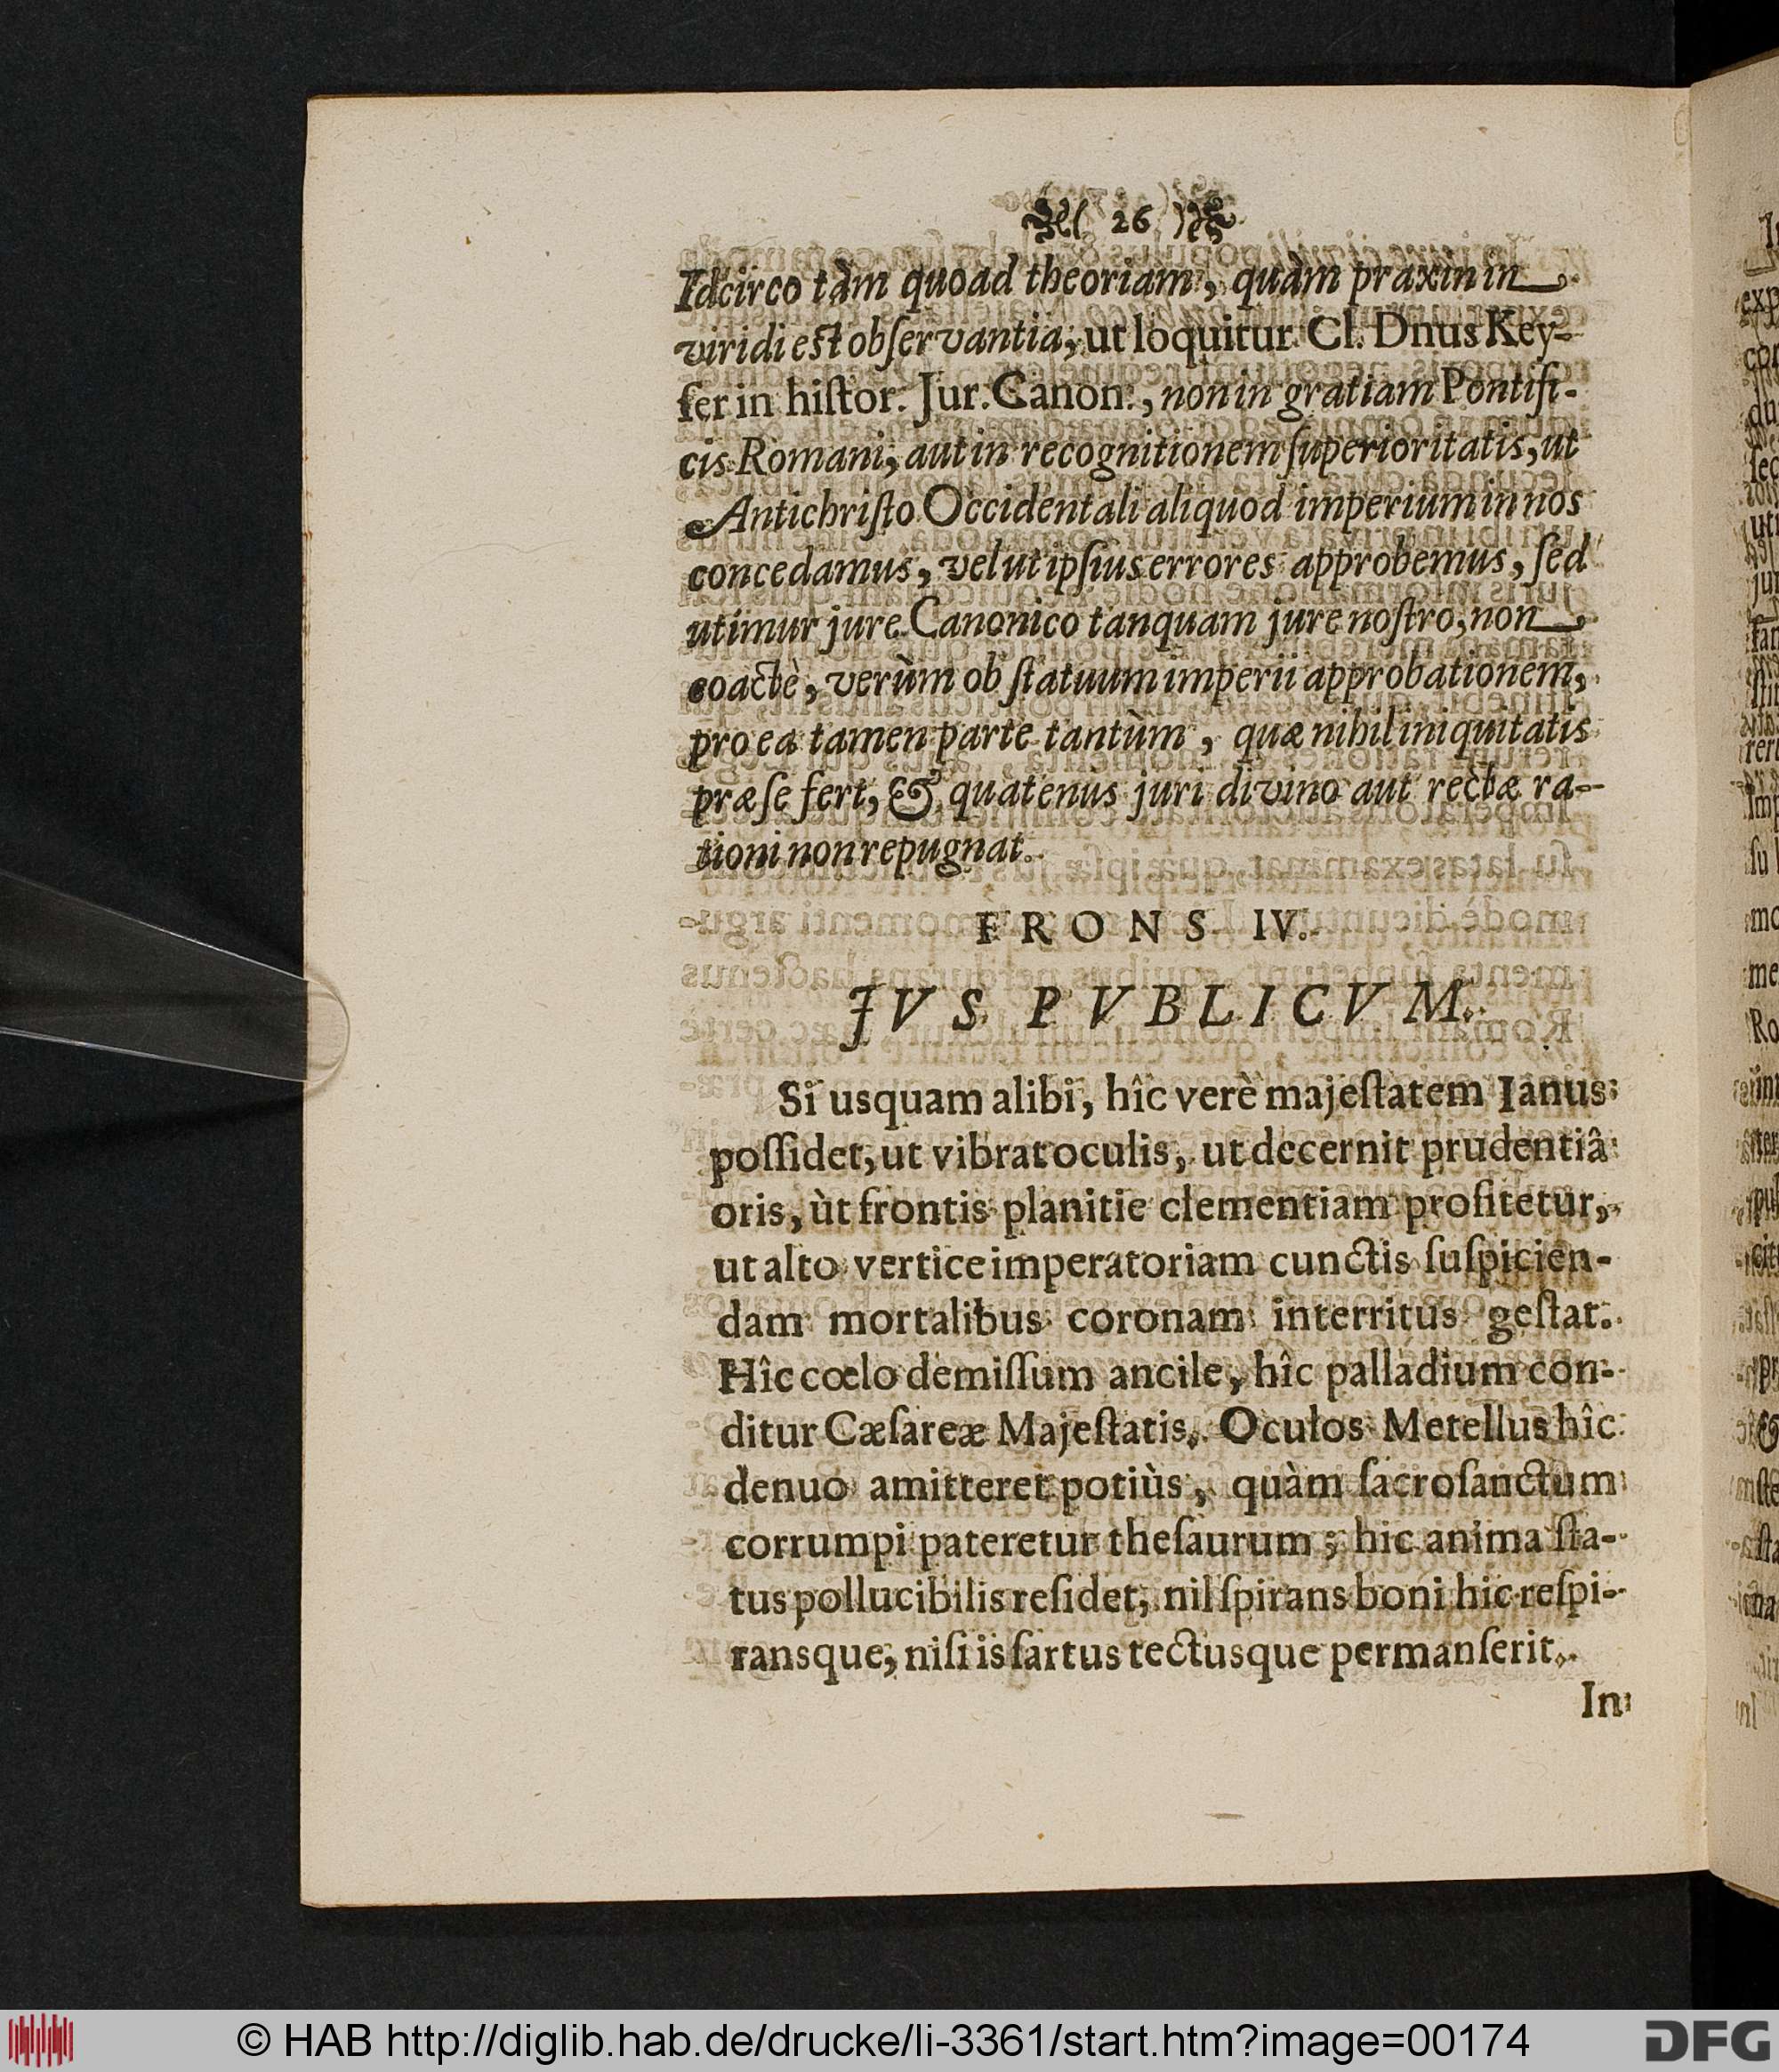 ( 26 )
Idcirco tàm quoad theoriam, quàm praxin in
viridi est obſervantia, ut loquitur Cl. Dnus Key-
ſer in hiſtor. Jur. Canon., non in gratiam Pontifi-
cis Romani, aut in recognitionem ſuperioritatis, ut
Antichriſto Occidentali aliquod imperium in nos
concedamus, vel ut ipſius errores approbemus, ſed
utimur jure Canonico tanquam jure noſtro, non
coactè, verùm ob ſtatuum imperii approbationem,
pro ea tamen parte tantùm, quæ nihil iniquitatis
præ ſe fert, & quatenus juri divino aut rectæ ra-
tioni non repugnat.
FRONS IV.
JVS PVBLICVM.
Si usquam alibi, hîc verè majeſtatem Ianus
poſſidet, ut vibrat oculis, ut decernit prudentiâ
oris, ùt frontis planitie clementiam profitetur,
ut alto vertice imperatoriam cunctis ſuſpicien-
dam mortalibus coronam interritus geſtat.
Hîc cœlo demiſſum ancile, hîc palladium con-
ditur Cæſareæ Majeſtatis. Oculos Metellus hîc
denuo amitteret potiùs, quàm ſacroſanctum
corrumpi pateretur theſaurum; hic anima ſta-
tus pollucibilis reſidet, nil ſpirans boni hic reſpi-
ransque, niſi is ſartus tectusque permanſerit.
In
© HAB http://diglib.hab.de/drucke/li-3361/start.htm?image=00174
DFG